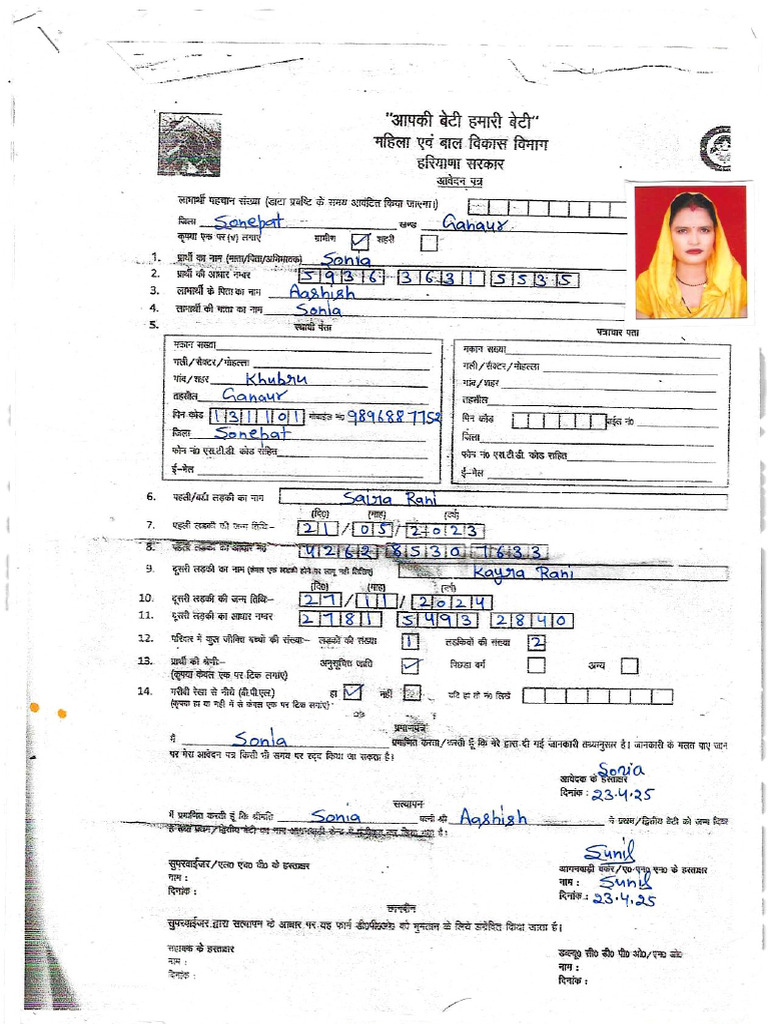 "आपकी बेटी हमारी बेटी"
महिला एवं बाल विकास विभाग
हरियाणा सरकार
आवेदन पत्र
लाभार्थी पहचान संख्या (डाटा प्रविष्टि के समय आवंटित किया जाएगा।)
जिला Sonepat खण्ड Ganaur
कृपया एक पर (√) लगाएं ग्रामीण ✓ शहरी
1. प्रार्थी का नाम (माता/पिता/अभिभावक) Sonia
2. प्रार्थी की आधार नम्बर 5936 3631 5535
3. लाभार्थी के पिता का नाम Aashish
4. लाभार्थी की माता का नाम Sonia
5. स्थायी पता पत्राचार पता
मकान संख्या मकान संख्या
गली/सैक्टर/मोहल्ला गली/सैक्टर/मोहल्ला
गांव/शहर Khubru गांव/शहर
तहसील Ganaur तहसील
पिन कोड 131101 मोबाईल नं0 9896887752 पिन कोड बाईल नं0
जिला Sonepat जिला
फोन नं0 एस.टी.डी. कोड सहित फोन नं0 एस.टी.डी. कोड सहित
ई-मेल ई-मेल
6. पहली/बड़ी लड़की का नाम Saira Rani
(दिन) (माह) (वर्ष)
7. पहली लड़की की जन्म तिथि:- 21/05/2023
8. पहली लड़की का आधार नं0 4262 8530 7633
9. दूसरी लड़की का नाम (केवल एक लड़की होने पर लागू नहीं लिखिए) Kayra Rani
(दिन) (माह) (वर्ष)
10. दूसरी लड़की की जन्म तिथि:- 27/11/2024
11. दूसरी लड़की का आधार नम्बर 2781 5493 2840
12. परिवार में कुल जीवित बच्चों की संख्या:- लड़कों की संख्या 1 लड़कियों की संख्या 2
13. प्रार्थी की श्रेणी:- अनुसूचित जाति ✓ पिछडा वर्ग अन्य
(कृपया केवल एक पर टिक लगाएं)
14. गरीबी रेखा से नीचे (बी.पी.एल.) हा ✓ नहीं यदि हा तो नं0 लिखें
(कृपया हा या नहीं में से केवल एक पर टिक लगाएं)
प्रमाणपत्र
मैं Sonia प्रमाणित करता/करती हूँ कि मेरे द्वारा दी गई जानकारी तथ्यानुसार है। जानकारी के गलत पाए जाने
पर मेरा आवेदन पत्र किसी भी समय पर रद्द किया जा सकता है।
Sonia
आवेदक के हस्ताक्षर
दिनांक : 23.4.25
सत्यापन
में प्रमाणित करती हूँ कि श्रीमति Sonia पत्नी श्री Aashish ने प्रथम/द्वितीय बेटी को जन्म दिया
Sunil
सुपरवाईजर/एल0 एच0 वी0 के हस्ताक्षर आंगनवाड़ी वर्कर/ए0 एन0 एम0 के हस्ताक्षर
नाम : नाम : Sunil
दिनांक : दिनांक : 23.4.25
छानबीन
सुपरवाईजर द्वारा सत्यापन के आधार पर यह फार्म डी0पी0ओ0 को भुगतान के लिये प्रेषित किया जाता है।
सहायक के हस्ताक्षर डब्ल्यू0 सी0 डी0 पी0 ओ0/एन0 ओ0
नाम : नाम :
दिनांक : दिनांक :